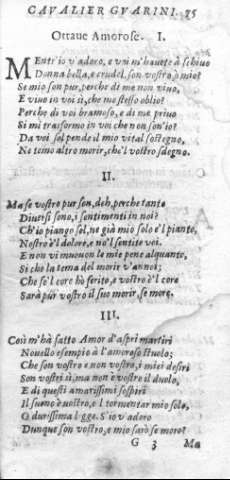 CAVALIER GVARINI. 95
Ottaue Amorose. I.
MEntr'io v'adoro, e voi m'hauete à schiuo
Donna bella, e crudel, son vostro, ò mio?
Se mio son pur, perche di me non viuo,
E viuo in voi sì, che me stesso oblio?
Perche di voi bramoso, e di me priuo
Sì mi trasformo in voi che non son'io?
Da voi sol pende il mio vital sostegno,
Ne temo altro morir, che'l vostro sdegno.
II.
Ma se vostro pur son, deh, perche tanto
Diuersi sono, i sentimenti in noi?
Ch'io piango sol, ne già mio solo è'l pianto,
Nostro è'l dolore, e no'l sentite voi.
E non vi muouon le mie pene alquanto,
Sì che la tema del morir v'annoi;
Che se'l core hò ferito, e vostro è'l core
Sarà pur vostro il suo morir, se more.
III.
Così m'hà fatto Amor d'aspri martiri
Nouello esempio à l'amoroso stuolo;
Che son vostro e non vostro, i miei desiri
Son vostri sì, ma non è vostro il duolo,
E di questi amarissimi sospiri
Il suono è vostro, e'l tormentar mio solo,
O durissima legge. S'io v'adoro
Dunque son vostro, e mio sarò se moro?
G 3 Ma